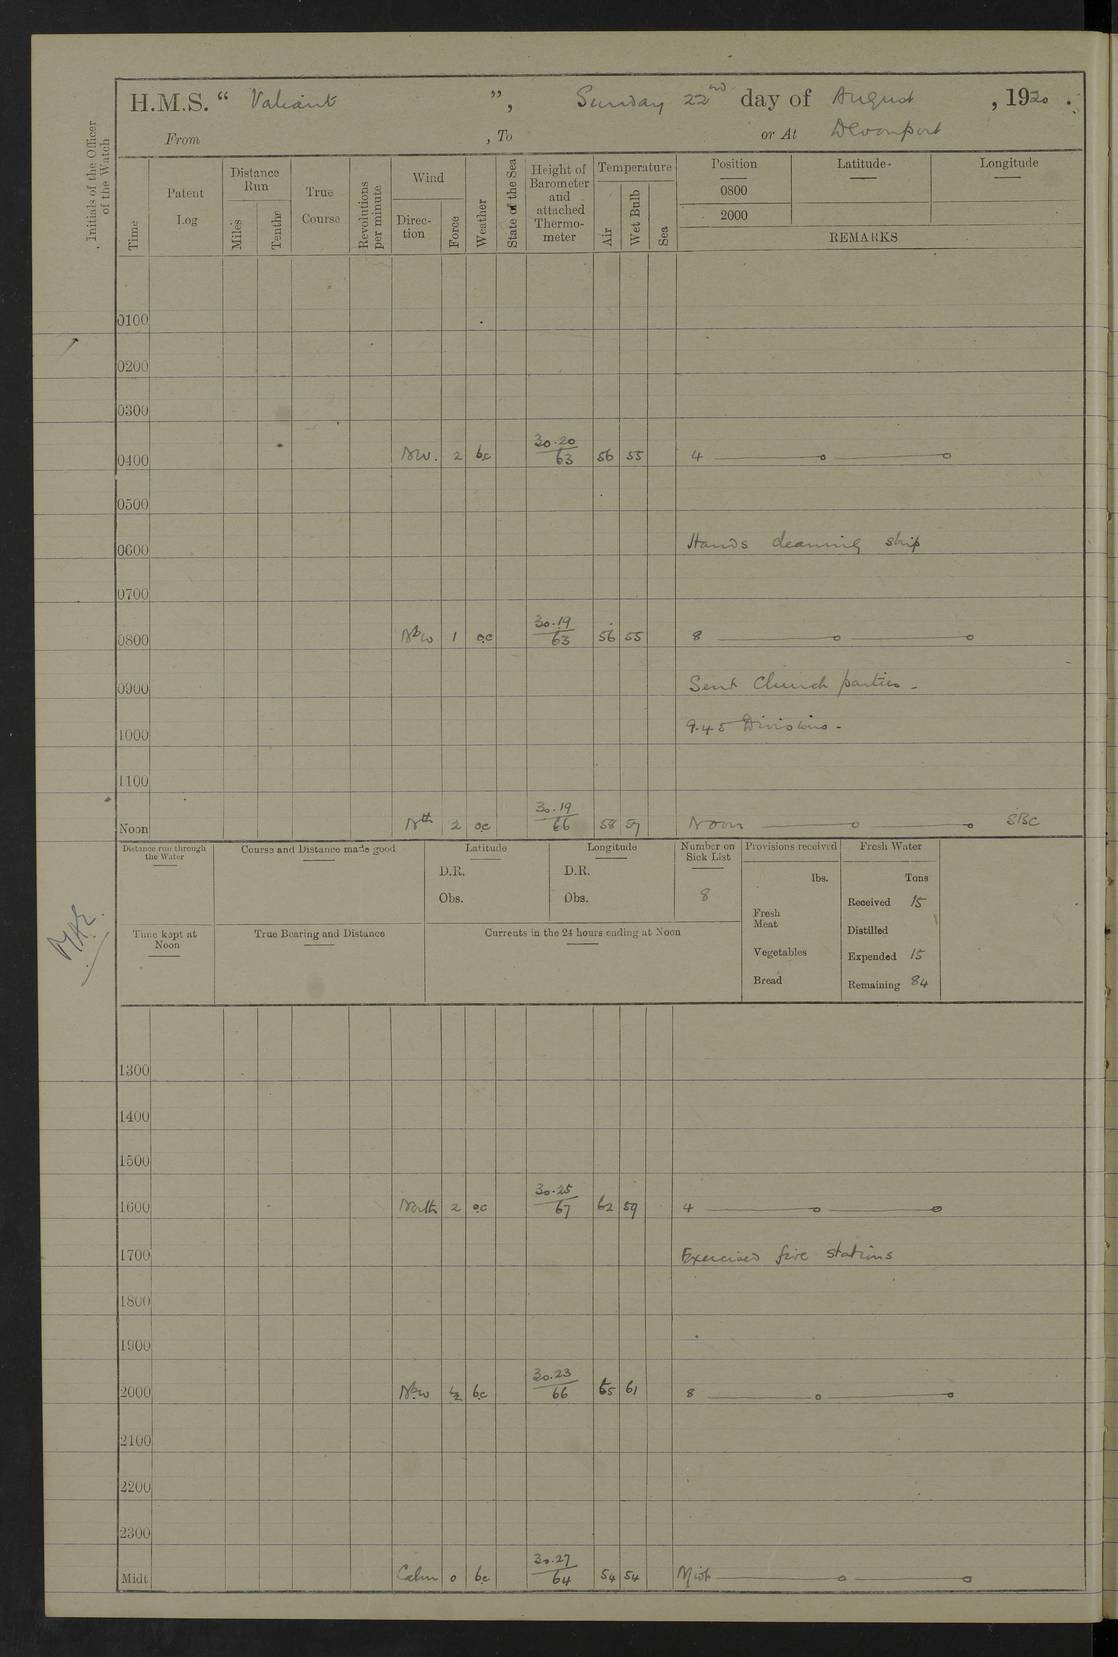 H.M.S. “ Valiant ”, Sunday 22nd day of August , 1920 .
From , To or At Devonport
Initials of the Officer of the Watch
Time
Patent Log
Distance Run
Miles
Tenths
True Course
Revolutions per minute
Wind
Direc-tion
Force
Weather
State of the Sea
Height of Barometer and attached Thermo-meter
Temperature
Air
Wet Bulb
Sea
Position Latitude Longitude
0800
2000
REMARKS
0100
0200
0300
0400 NW. 2 bc 30.20/63 56 55 4
0500
0600 Hands cleaning ship
0700
0800 NbW 1 oc 30.19/63 56 55 8
0900 Sent Church parties -
1000 9.45 Divisions -
1100
Noon Nth 2 oc 30.19/66 58 57 Noon SBC
Distance run through the Water
Course and Distance made good
Latitude
D.R.
Obs.
Longitude
D.R.
Obs.
Number on Sick List
8
Provisions received
lbs.
Fresh Meat
Vegetables
Bread
Fresh Water
Tons
Received 15
Distilled
Expended 15
Remaining 84
Time kept at Noon
True Bearing and Distance
Currents in the 24 hours ending at Noon
1300
1400
1500
1600 North 2 oc 30.25/67 62 59 4
1700 Exercised fire stations
1800
1900
2000 NbW bc 30.23/66 65 61 8
2100
2200
2300
Midt Calm 0 bc 30.27/64 54 54 Midt